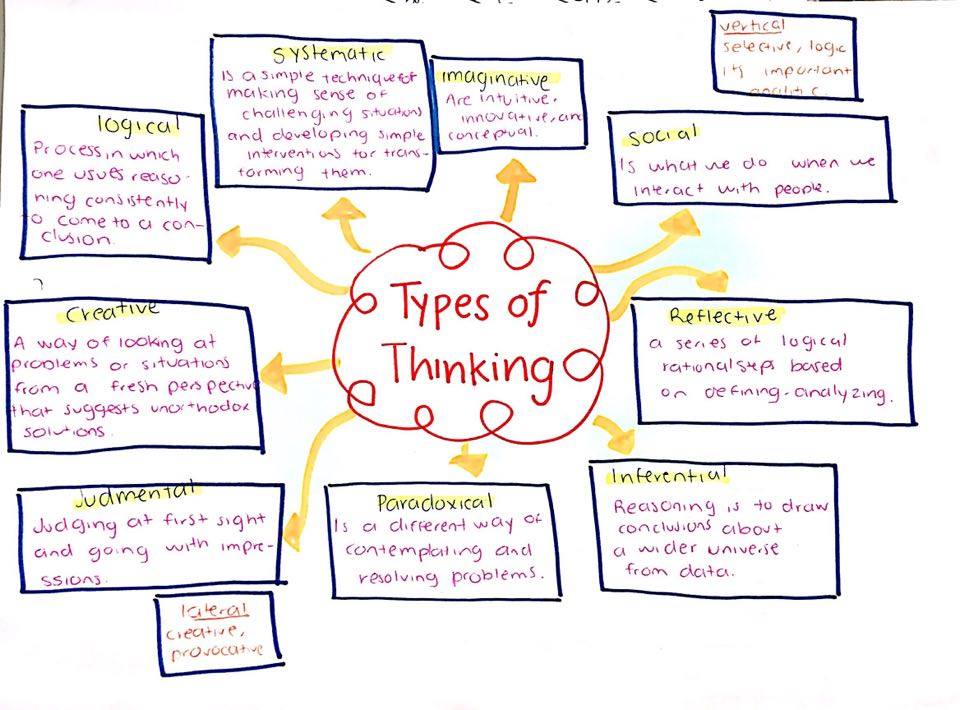 Types of
Thinking
Systematic
Is a simple technique for
making sense of
challenging situations
and developing simple
interventions for trans-
forming them.
imaginative
Are intuitive,
innovative, and
conceptual.
vertical
selective, logic
its important
analitic.
logical
Process in which
one usues reaso-
ning consistently
to come to a con-
clusion.
Social
Is what we do when we
interact with people.
Creative
A way of looking at
problems or situations
from a fresh perspective
that suggests unorthodox
solutions.
Reflective
a series of logical
rational steps based
on defining-analyzing.
Judmental
Judging at first sight
and going with impre-
ssions.
Paradoxical
Is a different way of
contemplating and
resolving problems.
Inferential
Reasoning is to draw
conclusions about
a wider universe
from data.
lateral
creative,
provocative